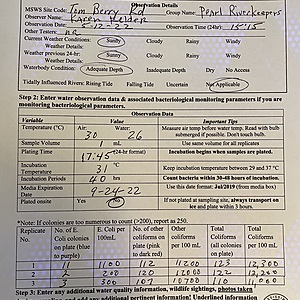 Observation Details
MSWS Site Code: Tom Berry Rd Group Name: Pearl Riverkeepers
Observer Name: Karen Helder
Observation Date: 5-12-22 Observation Time (24hr): 15:15
Other Testers: na
Current Weather Conditions: Sunny Cloudy Rainy Snowy Windy
Weather previous 24-hr: Sunny Cloudy Rainy Snowy Windy
Weather Conditions:
Waterbody Condition: Adequate Depth Inadequate Depth Dry No Access
Tidally Influenced Rivers: Rising Tide Falling Tide Uncertain Not Applicable
Step 2: Enter water observation data & associated bacteriological monitoring parameters if you are
monitoring bacteriological parameters.
Observation Data
Variable Value Important Tips
Temperature (°C) Air 30 Water 26 Measure air temp before water temp. Read with bulb
submerged if possible. Don't touch bulb.
Sample Volume 1 mL Use same volume for all replicates
Plating Time 17:45 (24-hr format) Incubation begins when samples are plated.
Incubation
Temperature 31 °C Keep incubation temperature between 29 and 37 °C
Incubation Periods 40 hrs Count bacteria within 30-48 hours of incubation.
Media Expiration
Date 9-24-22 Use this date format: Jul/2019 (from media box)
Plated onsite Yes No If not plated at sampling site, always transport on
ice and plate within 3 hours.
*Note: If colonies are too numerous to count (>200), report as 250.
Replicate
No. No. of E.
Coli colonies
on plate (blue
to purple) E. Coli per
100mL No. of other
coliforms on
plate (pink to
dark red) Other
coliforms
per 100 mL Total
Coliforms
(all colonies
on plate) Total
Coliforms
per 100 mL
1 11 1100 112 11200 123 12,300
2 2 200 120 12000 122 12,200
3 3 300 107 10700 110 11,000
Step 3: Enter any additional water quality information, wildlife sightings, photos taken